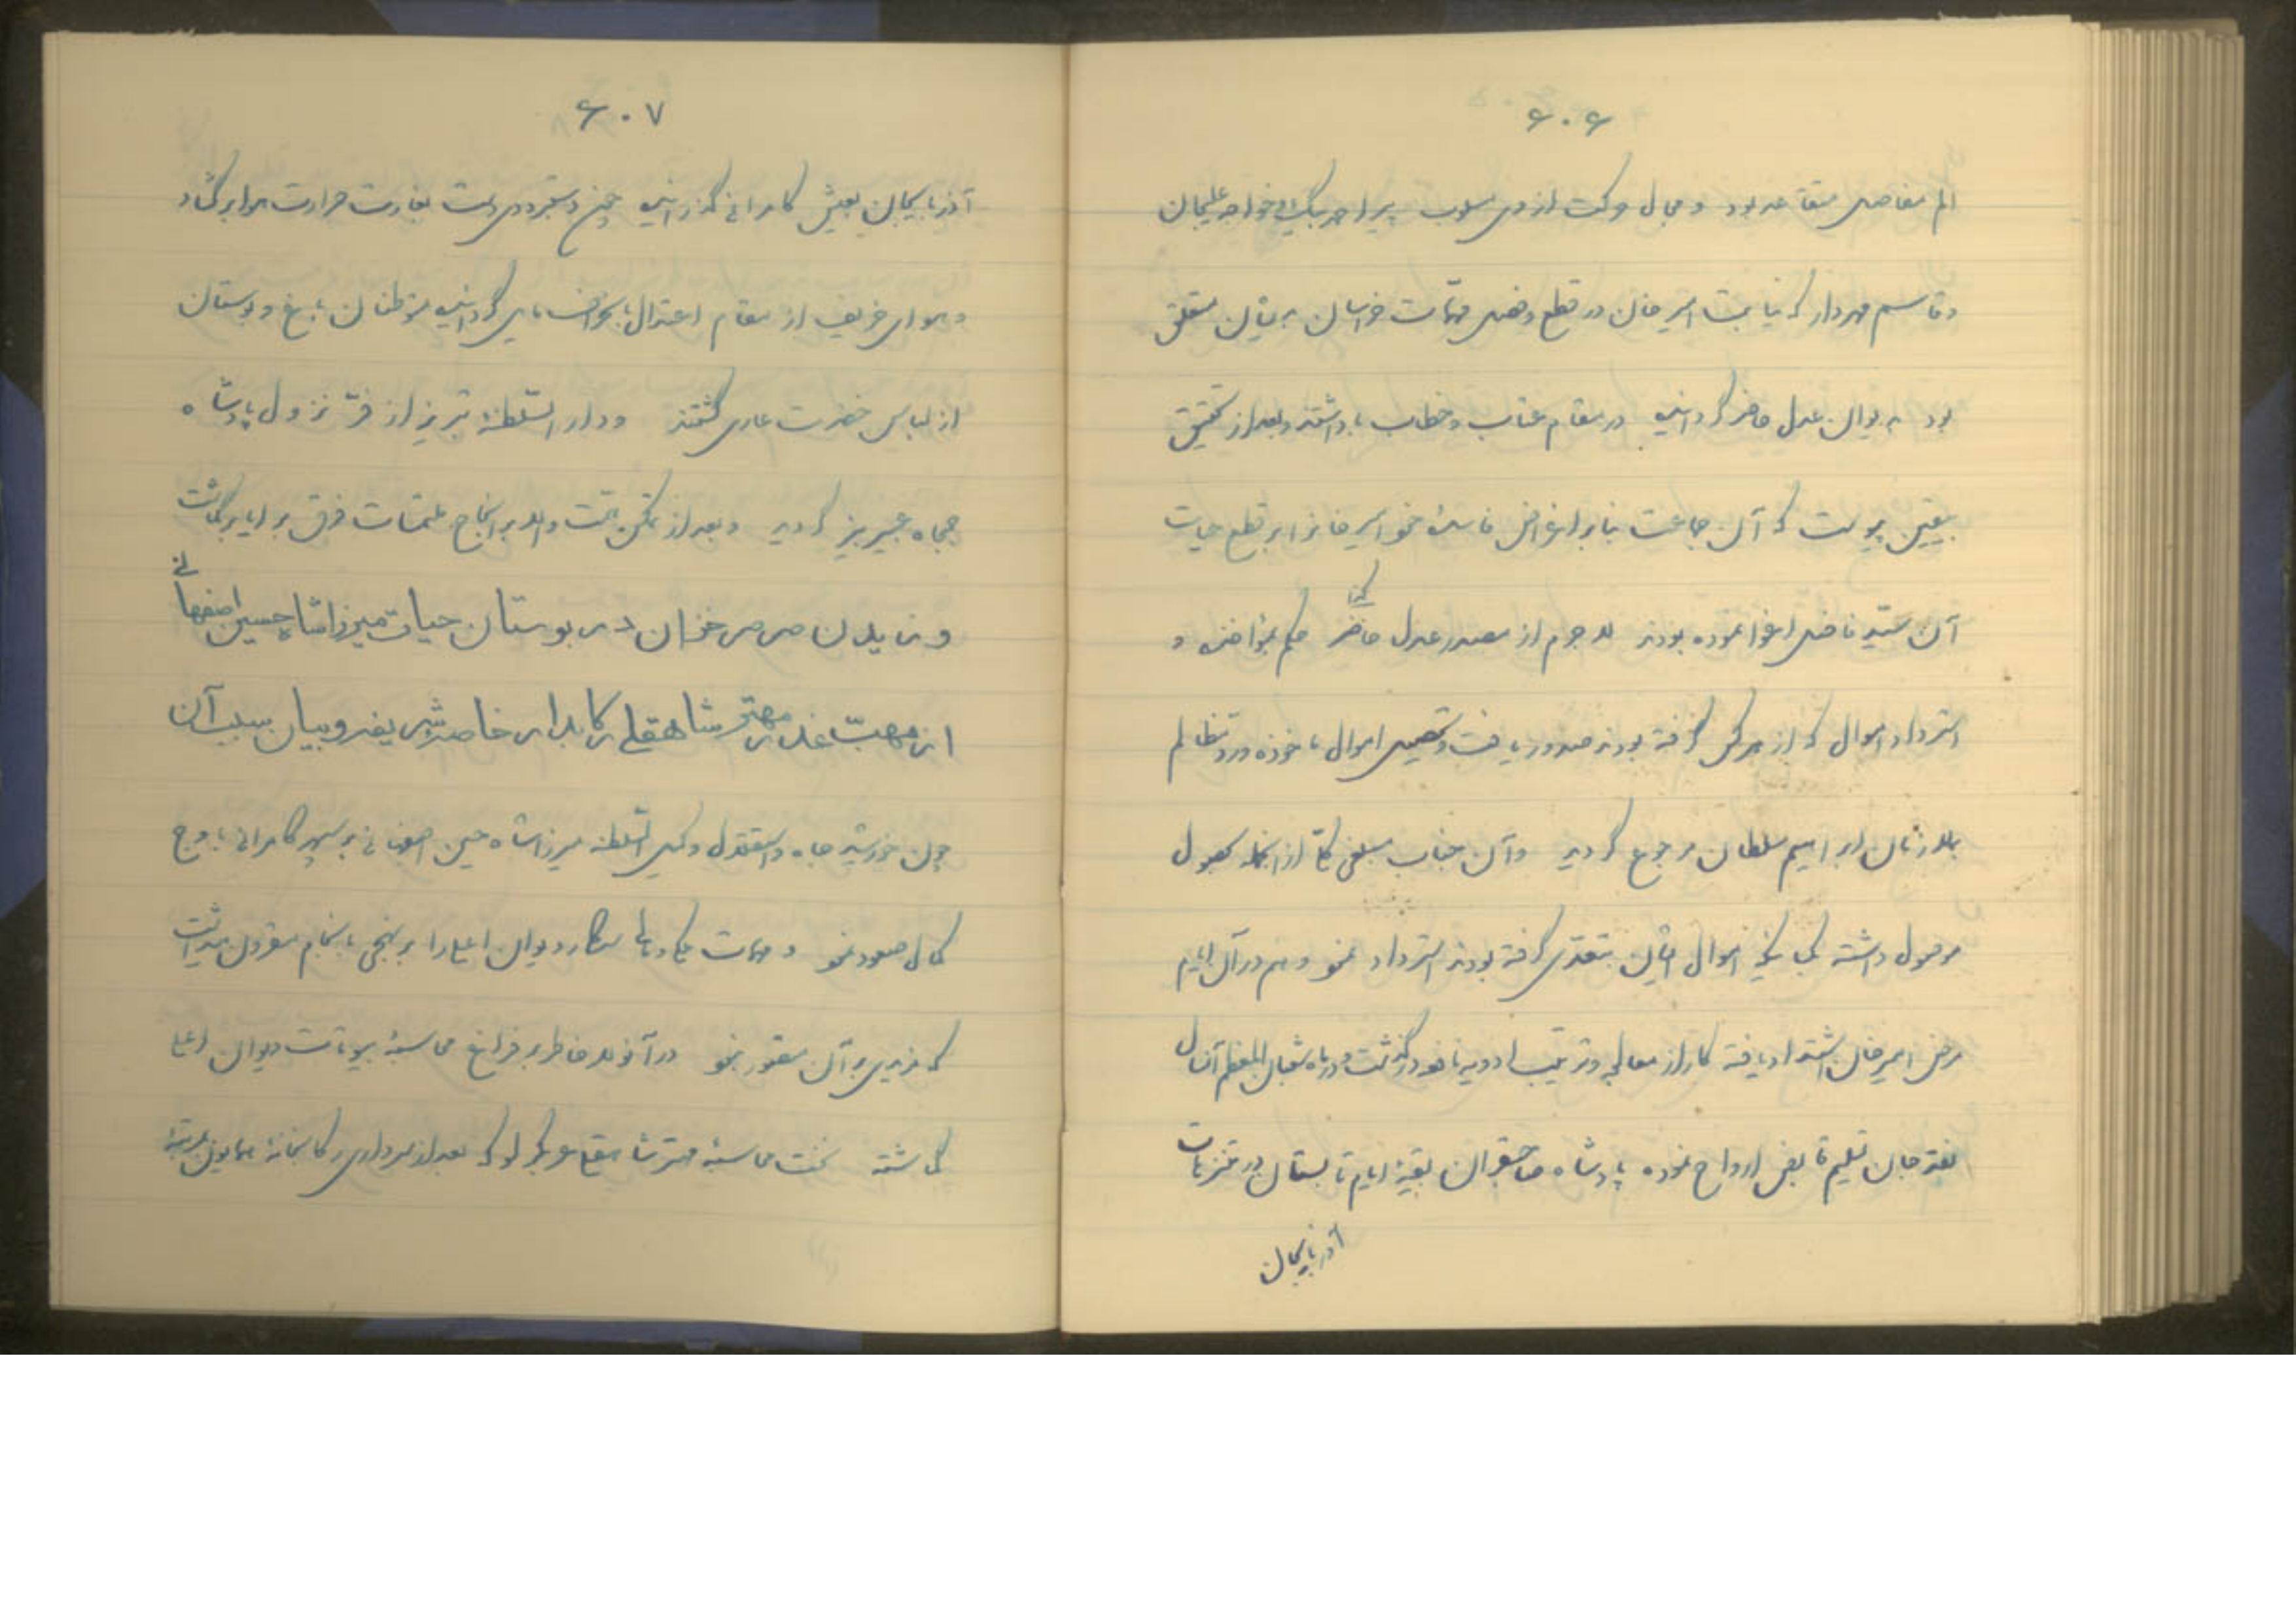 ۶۰۶
الم مفاصل متقاعد بود و مجال حرکت از وی مسلوب پیر احمد بیک خواجه علیجان
و قاسم مهردار که نیابت امیر خان در قطع و فصل مهمات خراسان بدیشان متعلق
بود به دیوان عدل حاضر گردانیده در مقام عتاب و خطاب باز داشتند و بعد از تحقیق
بیقین پیوست که آن جماعت بنابر اغراض فاسده خود امیر خانرا بر قطع حیات
آن سید فاضل اغوا نموده بودند لاجرم از مصدر عدل حکم بمؤاخذه و
استرداد اموال که از هر کس گرفته بودند صدور یافت و تحصیل اموال ماخوذه و رد مظالم
بدورمش ابراهیم سلطان مرجوع گردید و آن جناب مبلغی کلی از آنجمله بحصول
موصول داشته اموال ایشان بتعدی گرفته بودند استرداد نمود و هم در آن ایام
مرض امیر خان اشتداد یافته کار از معالجه و ترتیب ادویه نافعه درگذشت و در ماه شعبان المعظم آن سال
نقد جان تسلیم قابض ارواح نموده پادشاه صاحبقران بقیه ایام تابستان در متنزهات
آذربایجان
۶۰۷
آذربایجان بعیش و کامرانی گذرانیده چون دستبرد دی دست بغارت حرارت هوا برگشاد
و هوای خریف از مقام اعتدال بانحراف مایل گردانیده متوطنان باغ و بوستان
از لباس خضرت عاری گشتند و دار السلطنه تبریز از فر نزول پادشاه
جمجاه عبیر بیز گردید و بعد از تمکن بتخت والا بر انجاح ملتمسات فرق برایا برگماشت
وزیدن صرصر خزان در بوستان حیات میرزا شاه حسین اصفهانی
از مهب غدر مهتر شاهقلی رکابدار خاصه شریفه و بیان سبب آن
چون خورشید جاه و استقلال وکیل السلطنه میرزا شاه حسین اصفهانی بر سپهر کامرانی باوج
کمال صعود نمود و مهمات سرکار دیوان اعلی را بر نهجی بانجام مقرون میداشت
که مزیدی بر آن متصور نبود در آنولا خاطر بر فراغ محاسبه بیوتات دیوان اعلی
گماشته نخست محاسبه مهتر شاهقلی که بعد از سرداری رکابخانه همایون بمرتبه